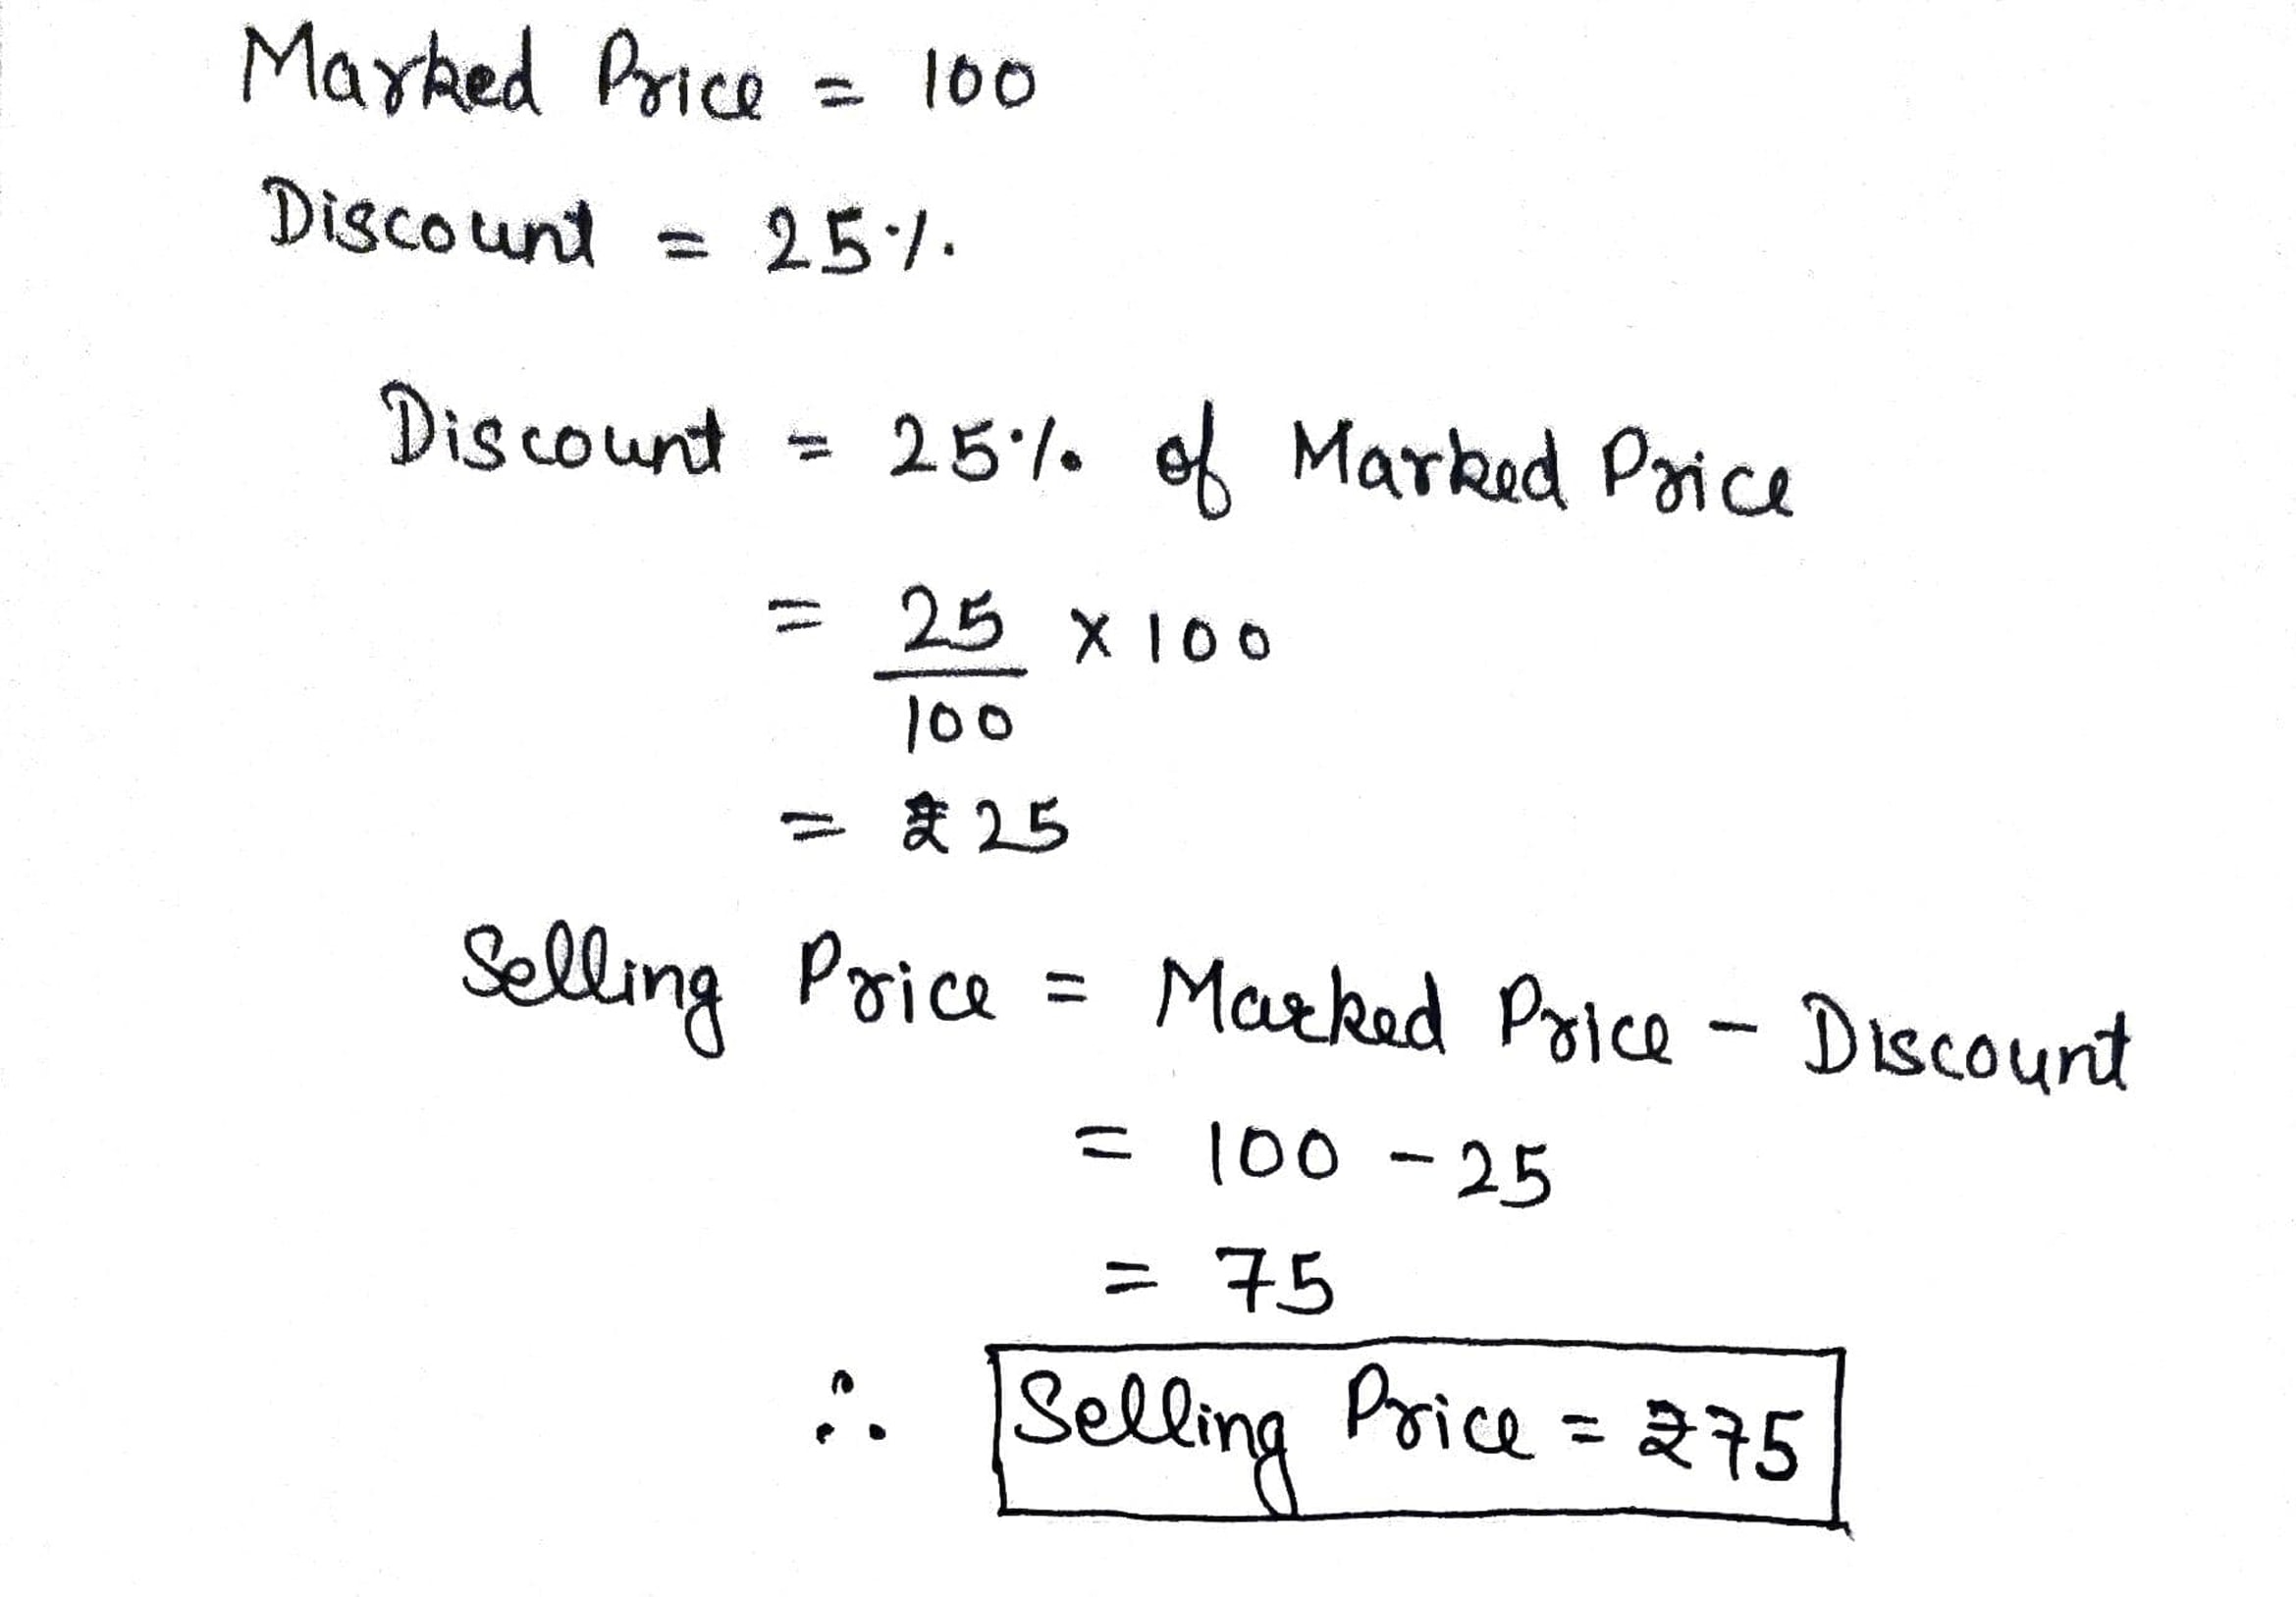 Marked Price = 100
Discount = 25%
Discount = 25% of Marked Price
= 25/100 × 100
= ₹25
Selling Price = Marked Price - Discount
= 100 - 25
= 75
∴ Selling Price = ₹75